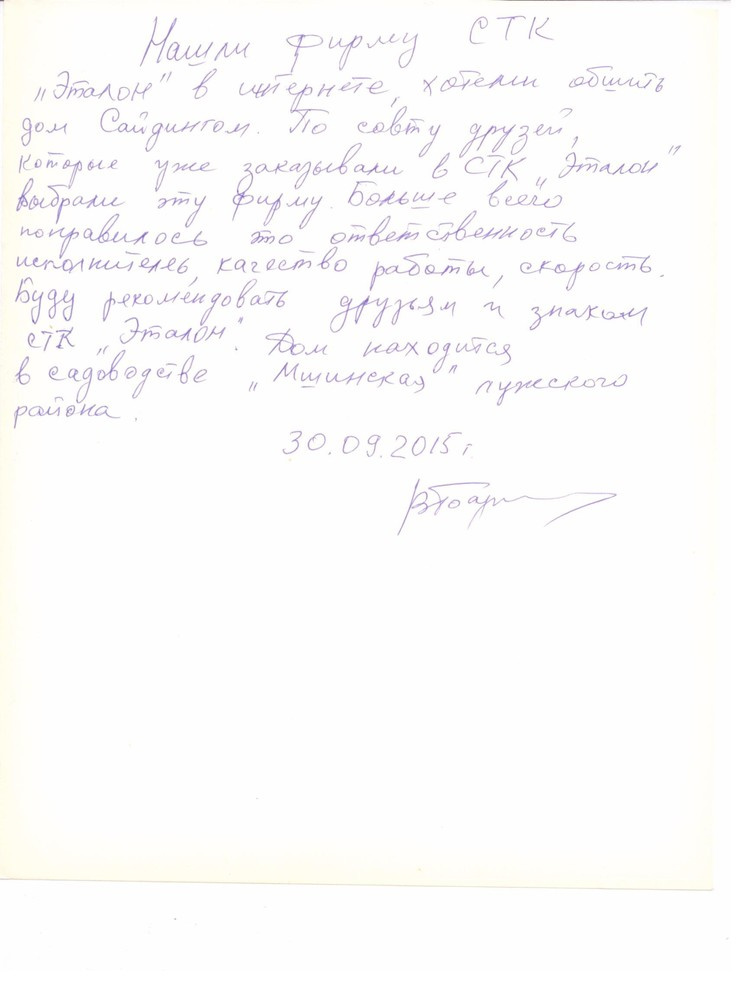 Нашли фирму СТК
„Эталон" в интернете, хотели обшить
дом Сайдингом. По совту друзей,
которые уже заказывали в СТК „Эталон"
выбрали эту фирму. Больше всего
понравилось это ответственность
исполнителей, качество работы, скорость.
Буду рекомендовать друзьям и знаком
СТК „Эталон". Дом находится
в садоводстве „Мшинская" лужского
района.
30.09.2015г